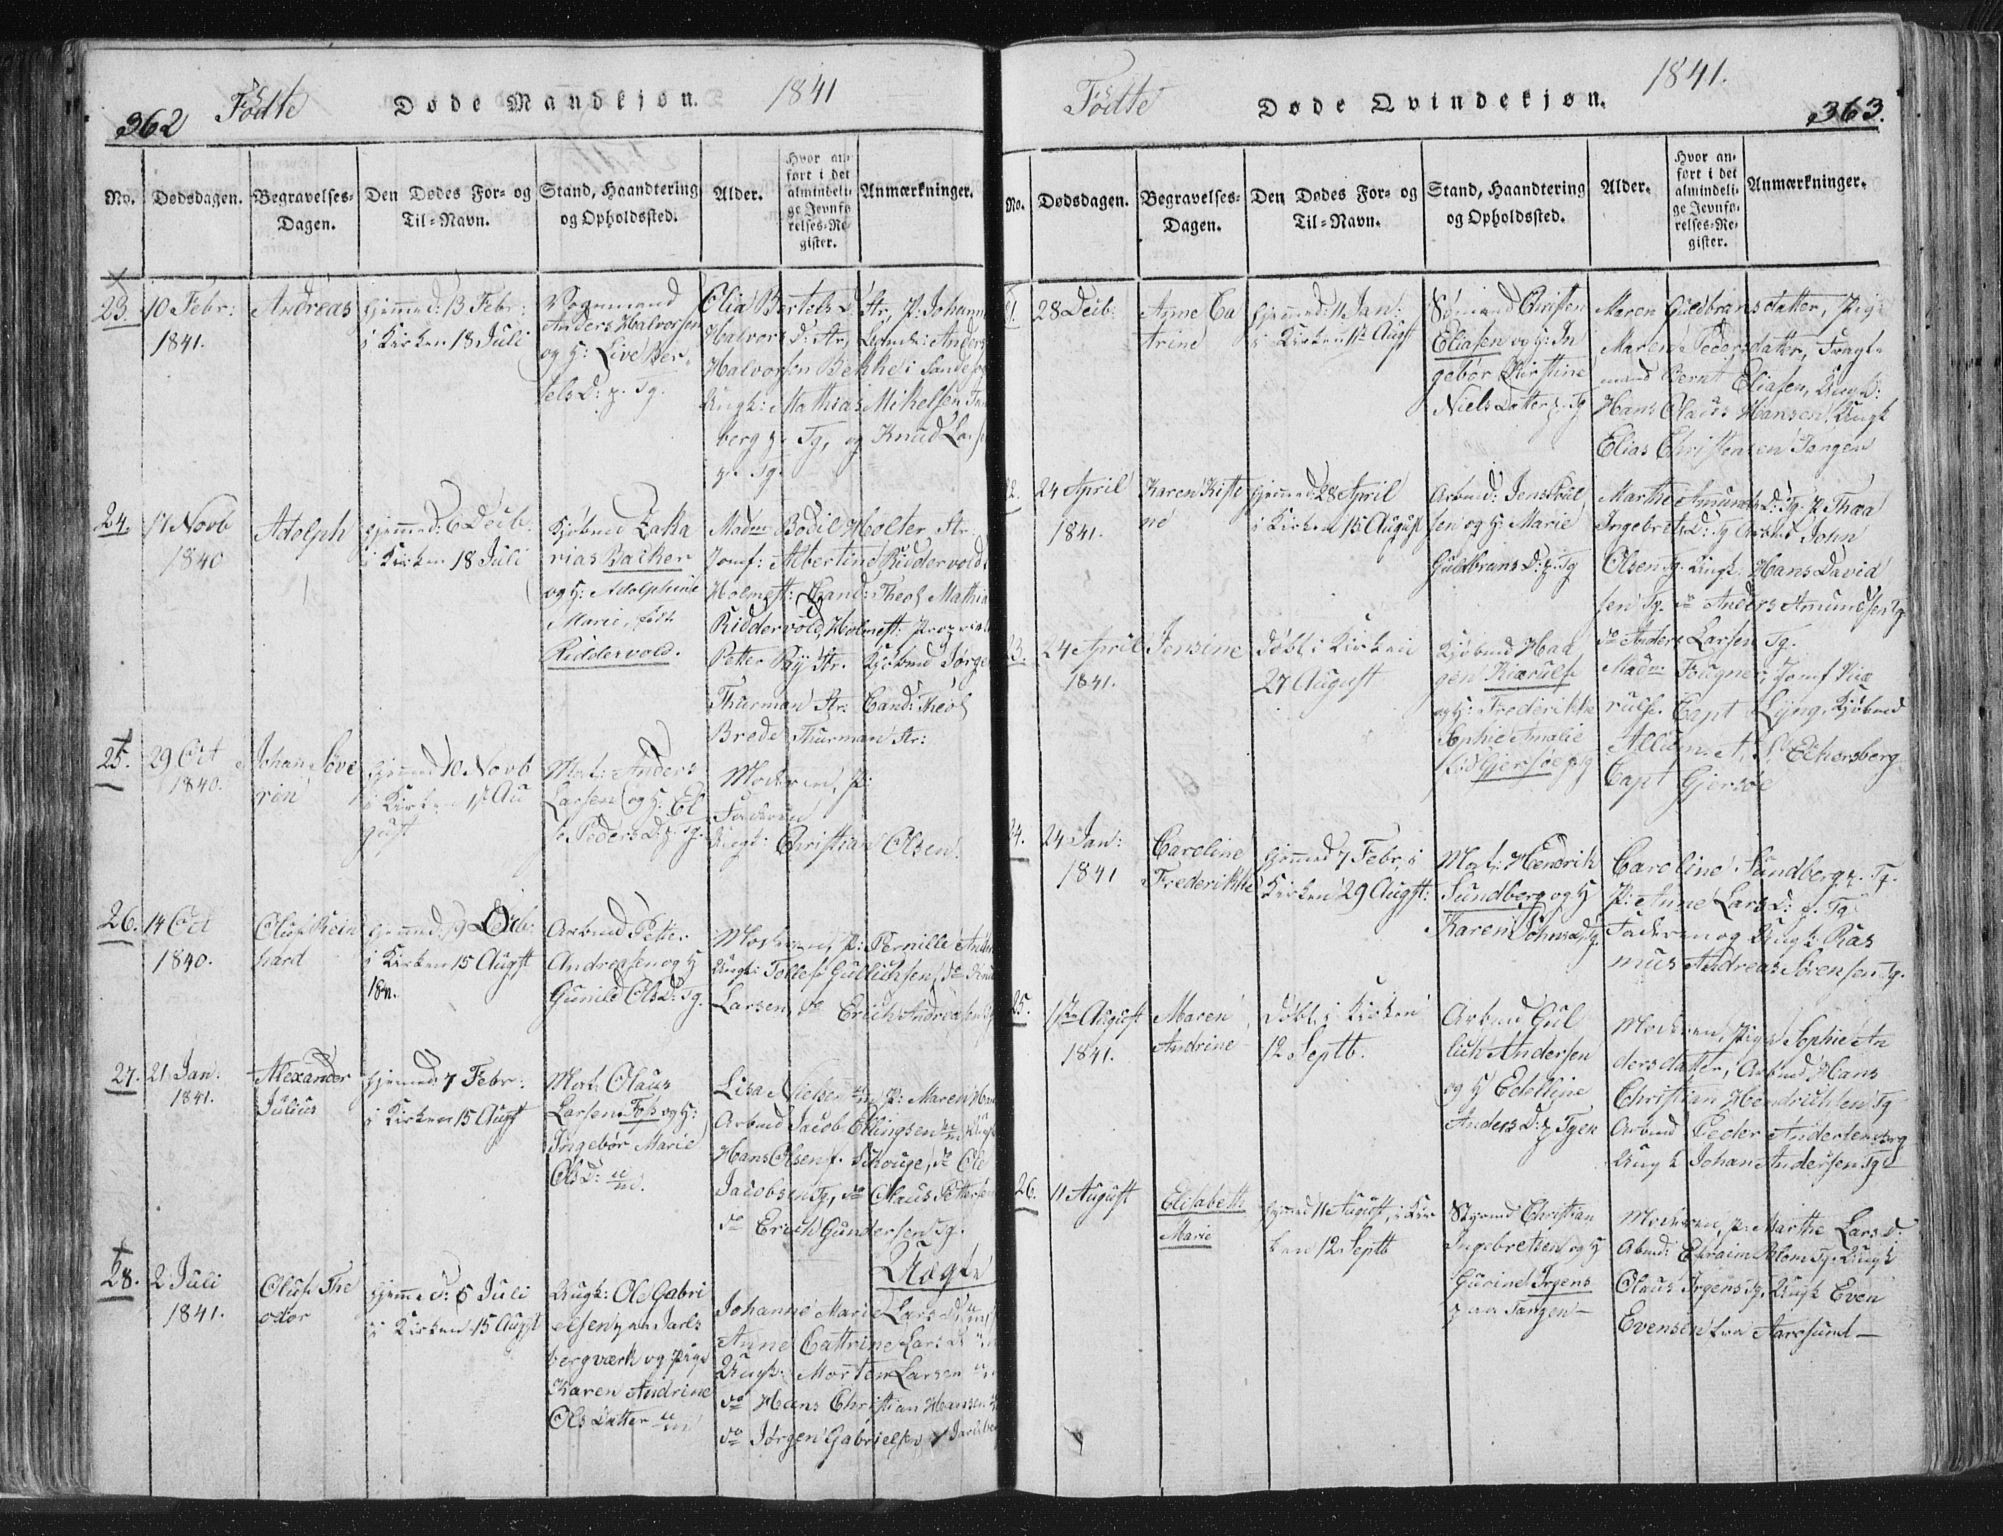 362
Fødte
Døde Mandkjøn.
1841
No.
Dødsdagen.
Begravelses-
Dagen.
Den Dødes For- og
Til-Navn.
Stand, Haandtering
og Opholdssted.
Alder.
Hvor an-
ført i det
almindeli-
ge Jevnfø-
relses-Re-
gister.
Anmærkninger.
23.
10 Febr:
1841.
Andreas
hjemmed: 13 Febr:
i Kirken 18 Juli
Vognmand
Anders Halvorsen
og H: Live Ber-
tels D: p. Tg.
Elia Bertels D: Str, P: Johann
Halvors D: Str,
Halvorsen Bekke i Sande
Ungk: Mathias Mikelsen
berg p. Tg, og Knud Lar
p. Tg.
24.
17 Novb
1840
Adolph
hjemmed: 6 Decb.
i Kirken 18 Juli
Kjøbmd Zaka
rias Backer
og H: Adolphine
Marie, født
Riddervold.
Madm Bodil Holter Str.
Jomf: Albertine Riddervold
Holmest: Cand: Theol Mathia
Riddervold, Holmest:
Petter Str. Kjøbmd Jørge
Thurman Str: Cand: Theol
Brede Thurman Str:
25.
29 Oct
1840.
Johan Seve
rin
hjemmed 10 Novb
i Kirken 1st Au
gust
Mat: Anders
Larsen og H: El
se Peders D: p. Tg.
Moderen, P:
Faderen
Ungk: Christian Olsen.
26.
14 Oct
1840.
Oluf Rein
hard
hjemmed: 19 Decb:
i Kirken 15 Augst
1841.
Arbmd Petter
Andreasen og H
Gunild Ols D: Tg.
Moderen, P: Pernille Anders
Ungk: Tollef Gullichsen, do
Larsen, do Erich Andreasen
27.
21 Jan.
1841.
Alexander
Julius
hjemmed 7 Febr:
i Kirken 15 Augst
Mat: Olaus
Larsen Foss og H:
Ingebør Marie
Ols D:
Lisa Nielsen P: Maren
Arbmd Jacob Ellingsen
Hans Olsen Skouge, do Ole
Jacobsen Tg, do Olaus Pettersen
do Erich Gundersen Tg.
Uægte
28.
2 Juli
1841.
Oluf The
odor
hjemmed: 5 Juli
i Kirken 15 Augst
Ungk: Ole Gabri
elsen p aa Jarls
bergværk og Pige
Karen Andrine
Ols Datter
Johanne Marie Lars D:
Anne Cathrine Lars D
Ungk: Morten Larsen
do Hans Christian Hansen
do Jørgen Gabrielsen, p Jarlsberg
Fødte
Døde Qvindekjøn.
1841.
363.
No.
Dødsdagen.
Begravelses-
Dagen.
Den Dødes For- og
Til-Navn.
Stand, Haandtering
og Opholdssted.
Alder.
Hvor an-
ført i det
almindeli-
ge Jevnfø-
relses-Re-
gister.
Anmærkninger.
21.
28 Decb:
Anne Ca
trine
hjemmed: 11 Jan:
i Kirken 1st Augst
Sømand Christen
Eliasen og H: In
gebør Kirstine
Niels Datter p. Tg
Maren Guldbransdatter, Pig:
Maren Pedersdatter, Fragte
mand Bernt Eliasen, Ungk:
Hans Olaus Hansen, Ungk
Elias Christensen Tangen
22.
24 April
1841.
Karen Kisti
ne
hjemmed: 28 April
i Kirken 15 August
Arbmd: Jens Poul
sen og H: Marie
Guldbrans D: p. Tg
Marthe Amunds D: Tg. P: Thea
Ingebrets D: Tg Arbmd John
Olsen Tg. Ungk: Hans David
sen Tg. do Anders Amundsen Tg.
do Anders Larsen Tg.
23.
24 April
1841.
Jensine
Døbt i Kirken
27 August
Kjøbmd Haa
gen Kiærulf
og H: Frederikke
Sophie Amalie
fød Gjersøe p Tg
Madm Fougner, Jomf Kiæ
rulf. Capt Lyng, Kjøbmd
Allum Eckersberg
Capt Gjersøe
24.
24 Jan:
1841
Caroline
Frederikke
hjemmed 7 Febr, i
Kirken 29 Augst:
Mat: Hendrik
Sundberg og H
Karen Johns D. Tg.
Caroline Sundberg p. Tg.
P: Anne Lars D: p. Tg.
Faderen og Ungk: Ras
mus Andreas Sørensen Tg.
25.
17de August
1841.
Maren
Andrine
Døbt i Kirken
12 Septb.
Arbmd Gul
lich Andersen
og H Edelline
Anders D: p Tgen
Moderen, Pige Sophie An
dersdatter, Arbmd Hans
Christian Hendrichsen Tg
Arbmd Peder Andersen
Ungk Johan Andersen Tg
26.
11 August
Elisabeth
Marie
hjemmd 11 August, i Kir
ken 12 Septb
Christian
Ingebretsen og H
Gurine Irgens
p aa Tangen—
Moderen, P: Marthe Lars D:
Abmd: Ephraim Tg. Ungk
Olaus Irgens Tg. Ungk Even
Evensen fra Aarøsund—